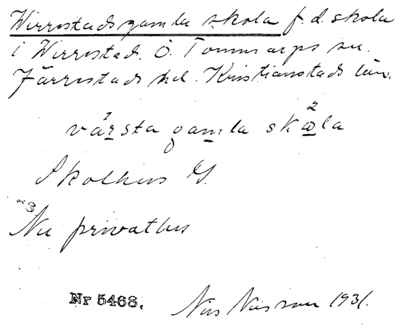 Wirrestads gamla skola f.d. skola
i Wirrestad. Ö. Tommarps sn.
Järrestads hd. Kristianstads län.
vårsta gamla skola
2
Skolhus G.
Nu privathus
Nr 5468. Nils Nilsson 1931.